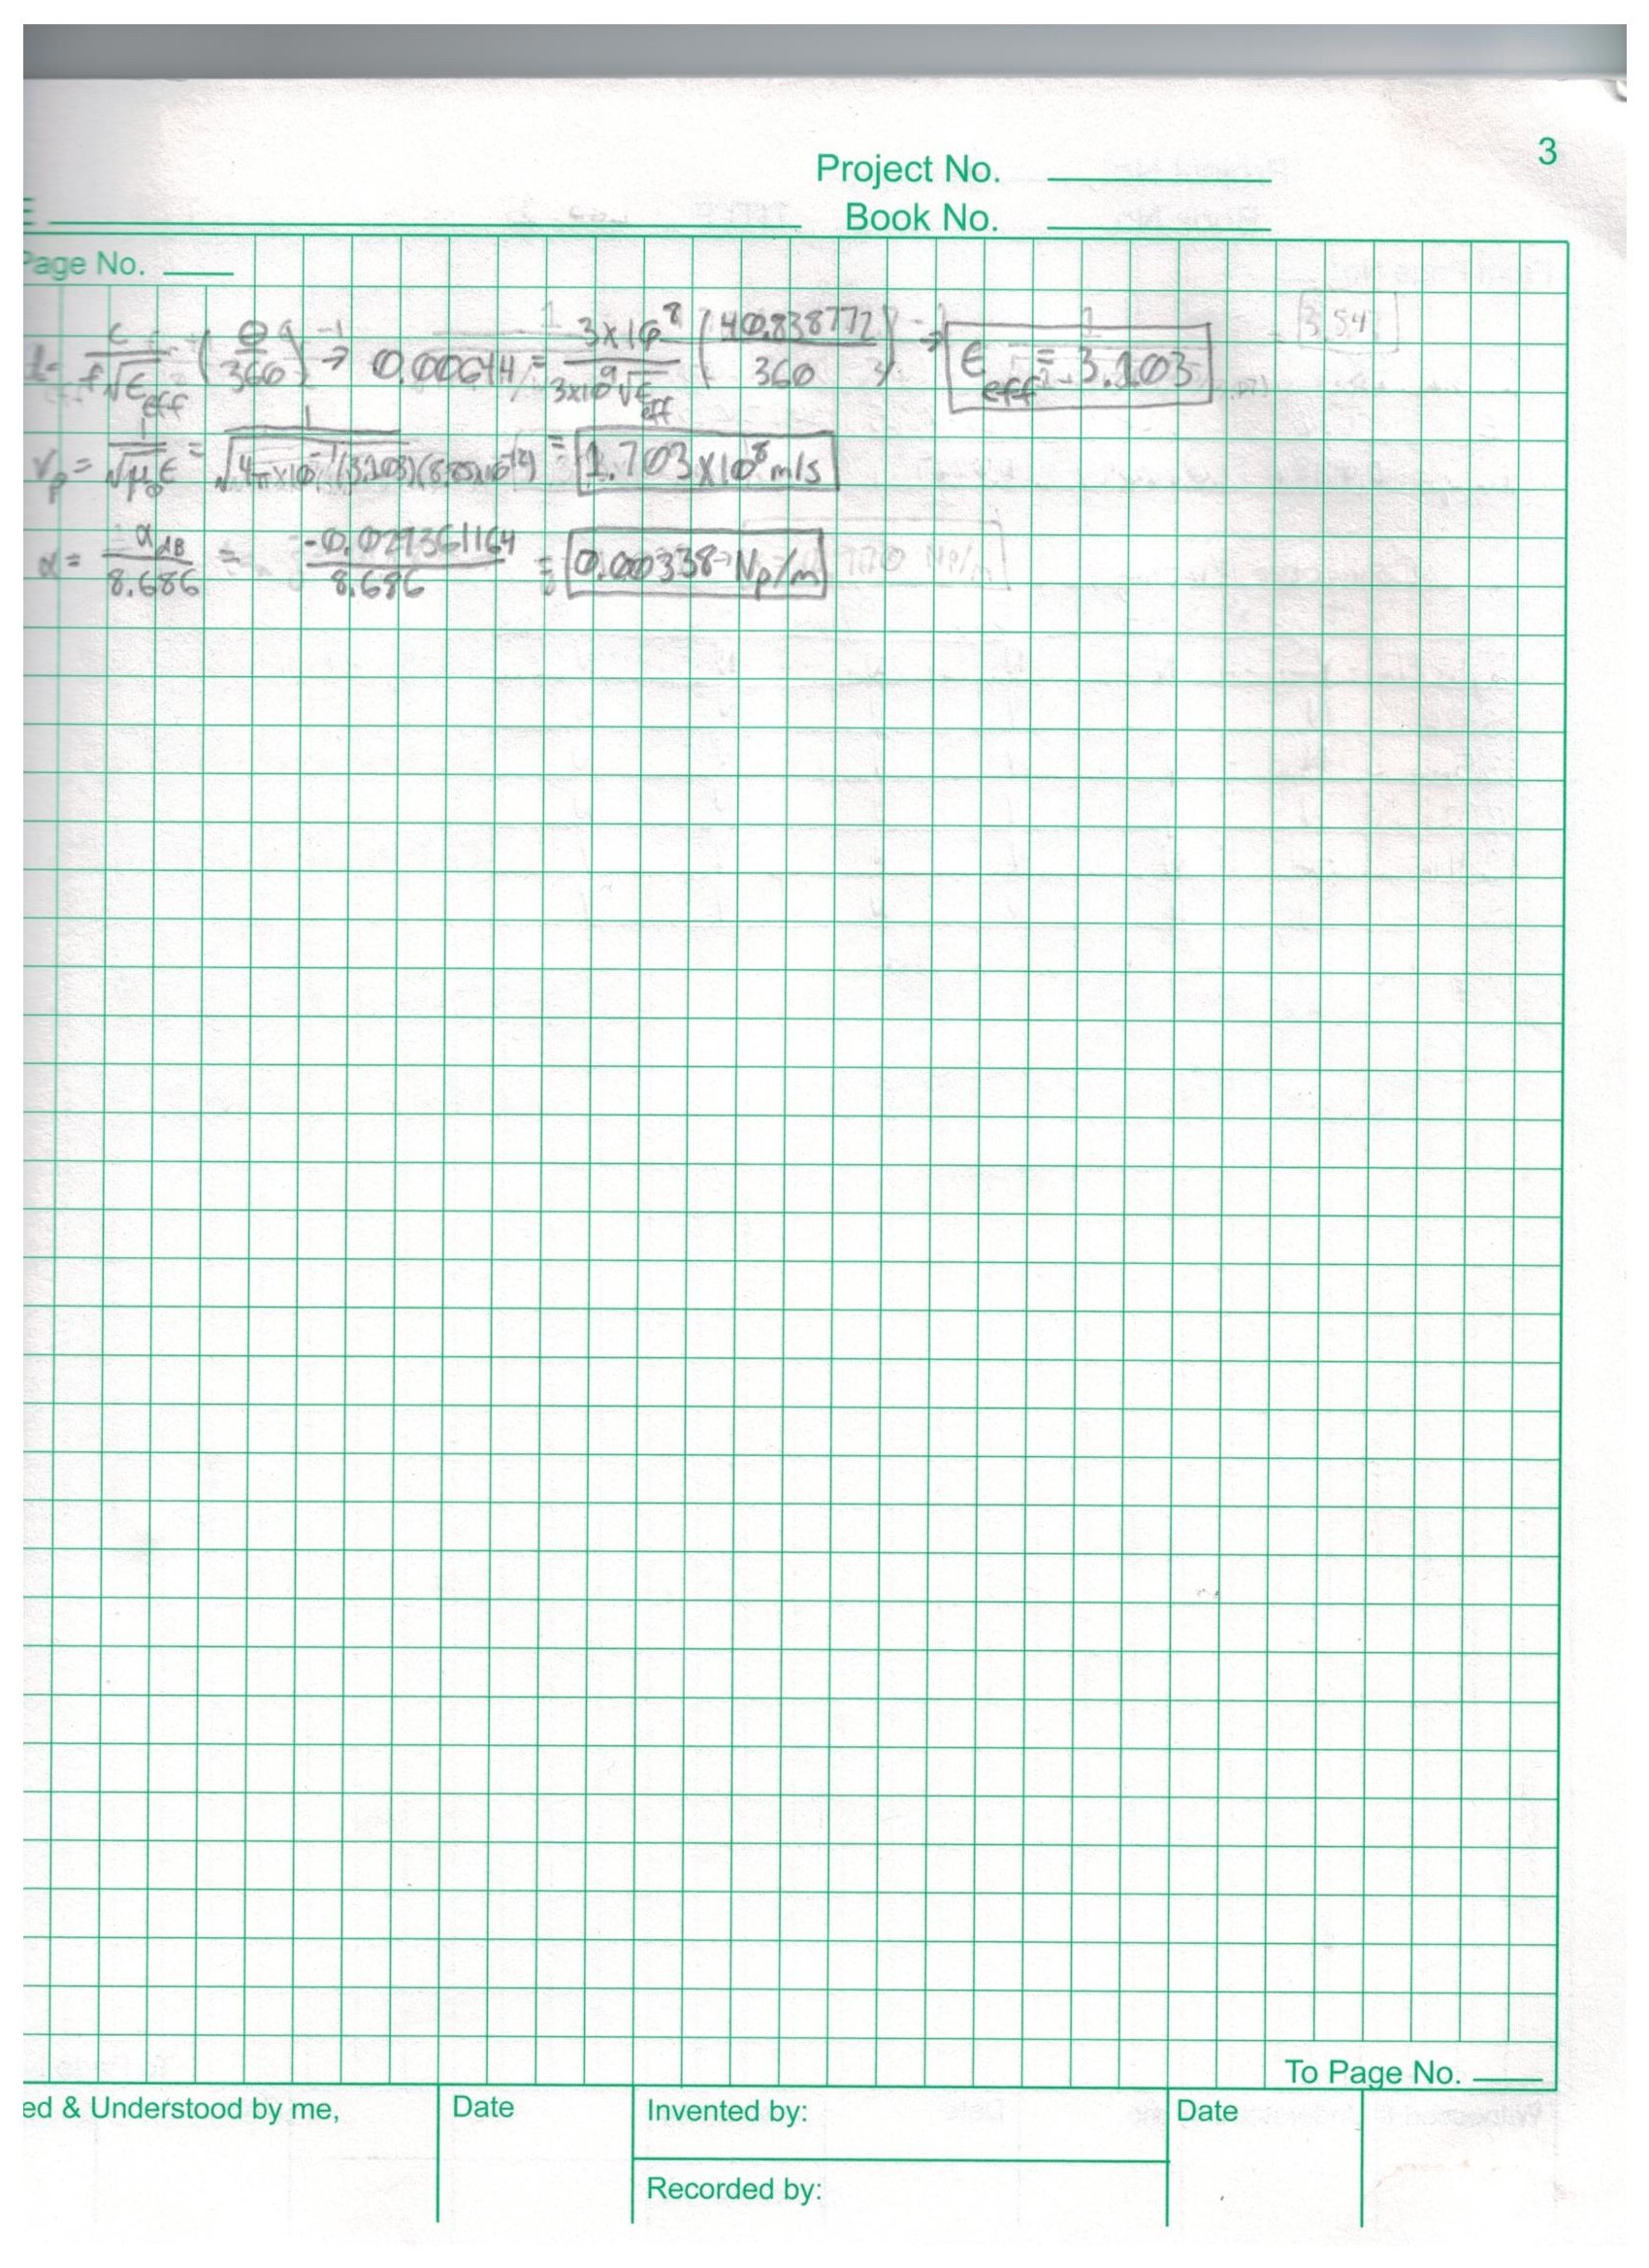 3
Project No.
Book No.
Page No.
l = c / f√ε_eff (θ / 360) → 0.00644 = 3×10^8 / 3×10^9 √ε_eff (40.838772 / 360) → ε_eff = 3.103
3.54
v_p = 1 / √μ₀ε = 1 / √4π×10^-7(3.103)(8.85×10^-12) = 1.703×10^8 m/s
α = -α_dB / 8.686 = -0.029361164 / 8.686 = 0.00338 Np/m
To Page No.
ed & Understood by me,
Date
Invented by:
Date
Recorded by: